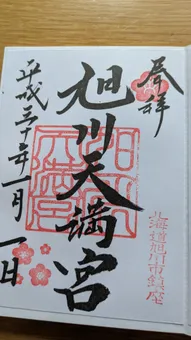 登拝
北海道旭川市鎮座
旭川天満宮
平成三十年一月一日